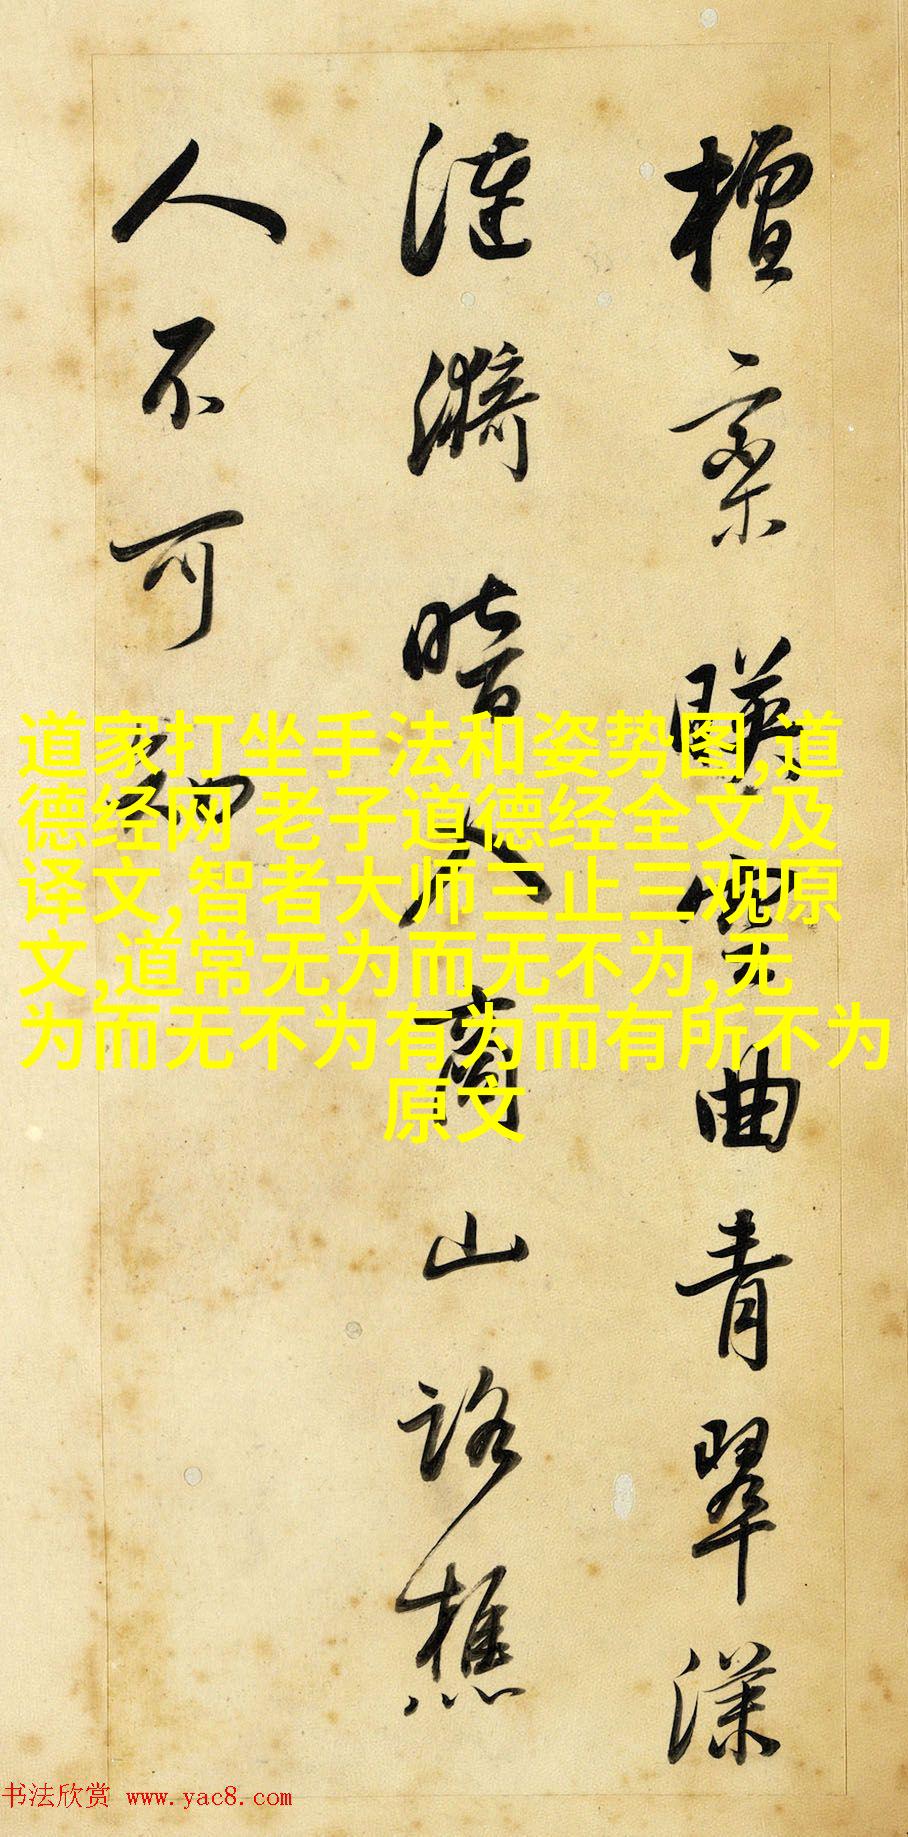 檀欒暎空曲青翠漾
漣漪暗入商山路樵
人不可知
道家打坐手法和姿势图,道
德经网 老子道德经全文及
译文,智者大师三止三观原
文,道常无为而无不为,无
为而无不为有为而有所不为
原文
书法欣赏 www.yac8.com